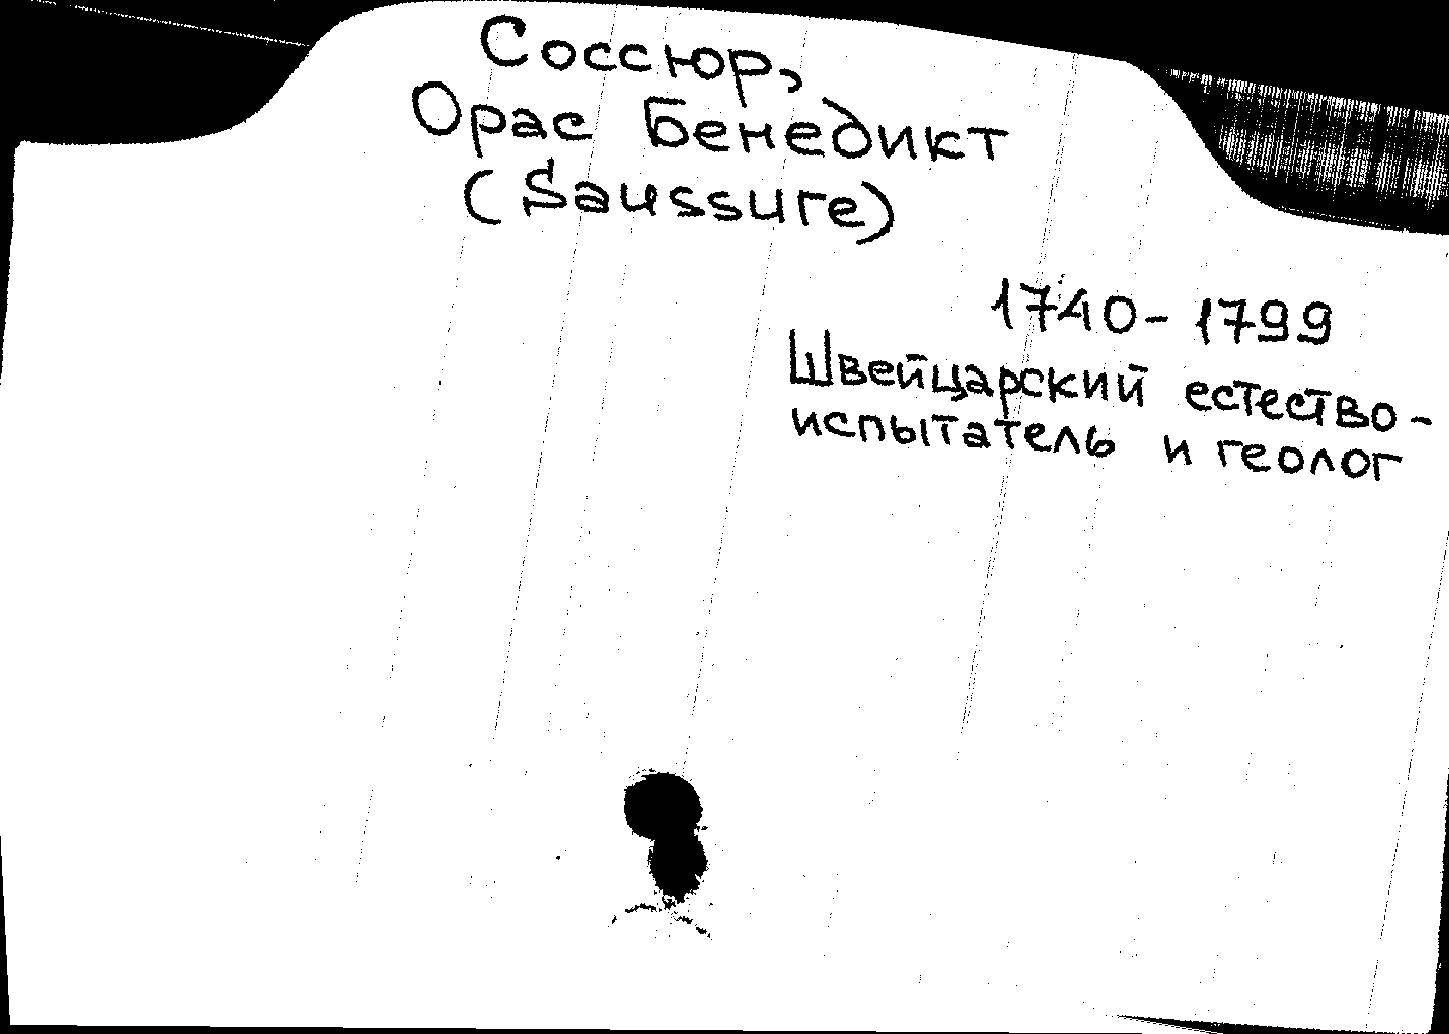 Соссюр,
Орас Бенедикт
(Saussure)
1740-1799
Швейцарский естество-
испытатель и геолог